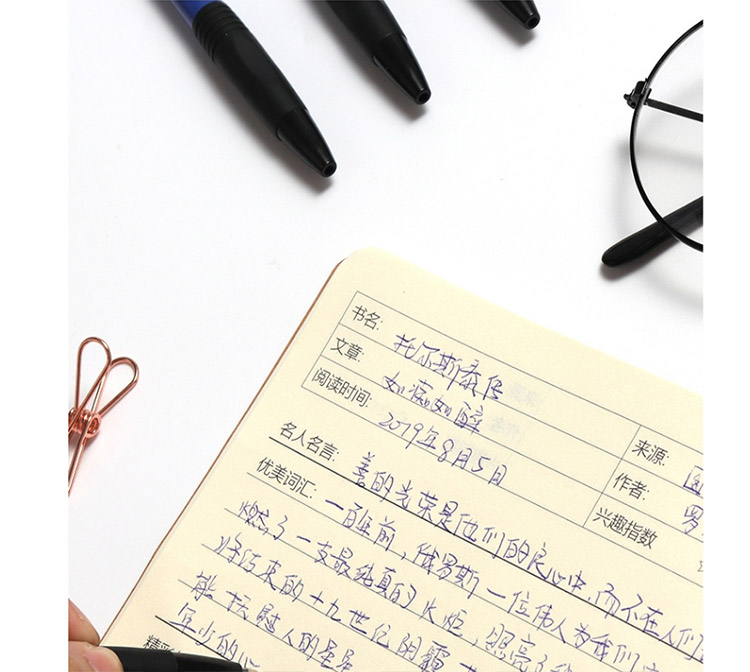 书名: 托尔斯泰传
文章: 如痴如醉
阅读时间: 2019年8月5日
来源:
作者: 罗
兴趣指数
名人名言: 善的光荣是他们的良心中,而不在人们
优美词汇: 一百年前,俄罗斯一位伟人为我们
燃了一支最纯真的火炬,照亮了
来的十九世纪阴霾
慰人的星星
的心
精彩